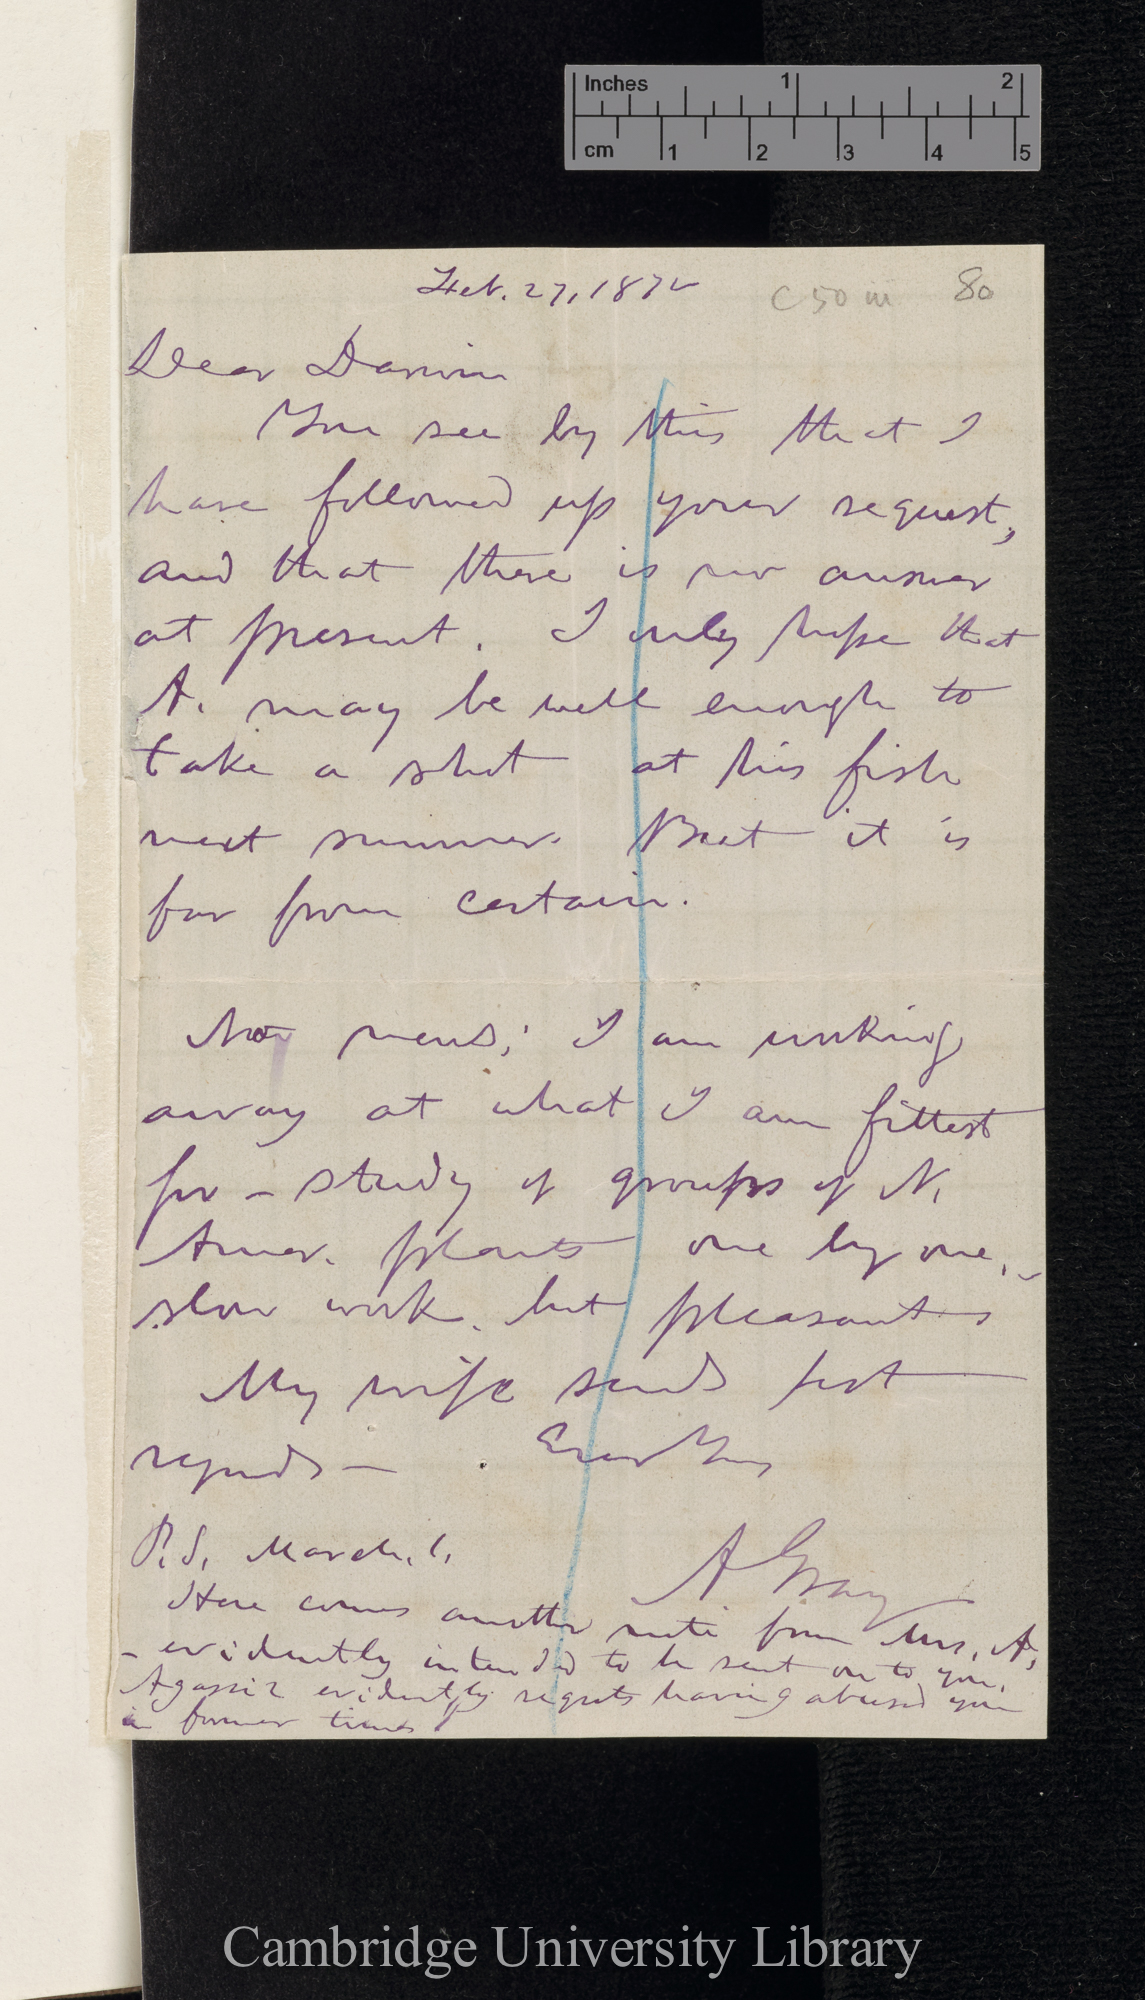 Inches 1 2
cm 1 2 3 4 5
Feb. 27, 1872
C 50 iii 80
Dear Darwin
You see by this that I
have followed up your request,
and that there is no answer
at present. I only hope that
A. may be well enough to
take a shot at his fish
next summer. But it is
far from certain.
No news; I am working
away at what I am fittest
for – study of groups of N.
Amer. plants one by one, –
slow work, but pleasant
My wife sends best
regards – Ever Yours
A Gray
P.S. March. 1.
Here comes another note from Mrs. A,
– evidently intended to be sent on to you.
Agassiz evidently regrets having abused you
in former times
Cambridge University Library